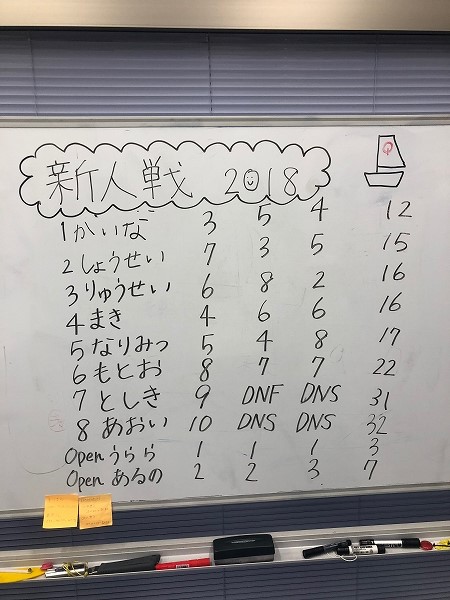 新人戦 2018
Q
1 かいな 3 5 4 12
2 しょうせい 7 3 5 15
3 りゅうせい 6 8 2 16
4 まき 4 6 6 16
5 なりみつ 5 4 8 17
6 もとお 8 7 7 22
7 としき 9 DNF DNS 31
8 あおい 10 DNS DNS 32
Open うらら 1 1 1 3
Open あるの 2 2 3 7